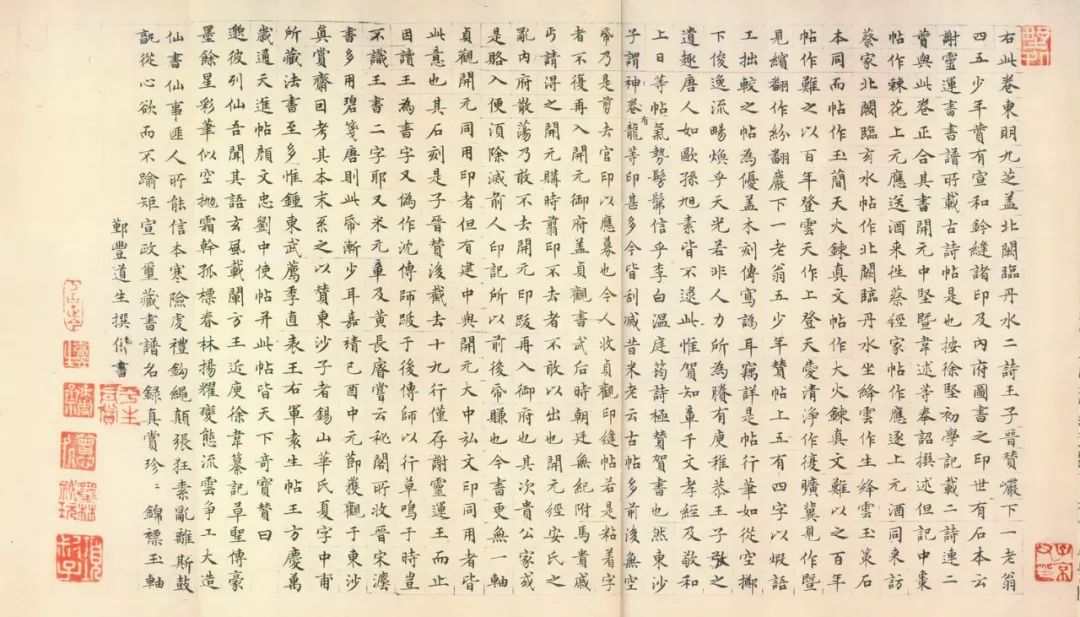 右此卷東明九芝盖北闕臨丹水二詩王子晉贊巖下一老翁
四五少年賛有宣和鈐縫諸印及內府圖書之印世有石本云
謝靈運書書譜所載古詩帖是也按徐堅初學記載二詩連二
贊與此卷正合其書開元中堅暨韋述等奉詔撰述但記中棗
帖作棘花上元應送酒来徃蔡經家帖作應逐上元酒同来訪
蔡家北闕臨玄水帖作北闕臨丹水坐絳雲作生絳雲玉策石
本同而帖作玉簡天火鍊真文帖作大火鍊真文難以之百年
帖作難之以百年登雲天作上登天臺清淨作復曠冀見作暨
見繽翻作紛翻巖下一老翁五少年贊帖上五有四字以蝦語
工拙較之帖為優盖木刻傳寫譌耳竊詳是帖行筆如從空擲
下俊逸流暢煥乎天光若非人力所為騰有庾稚恭王子敬之
遺趣唐人如歐孫旭素皆不逮此惟賀知章千文孝經及敬和
上日等帖氣勢髣髴信乎李白温庭筠詩極贊賀書也然東沙
子謂神卷有龍等印甚多今皆刮滅昔米老云古帖多前後無空
帋乃是剪去官印以應募也今人收貞觀印縫帖若是粘着字
者不復再入開元御府盖貞觀書武后時朝廷無紀附馬貴戚
丐請得之開元購時翦印不去者不敢以出也開元經安氏之
亂內府散蕩乃敢不去開元印跋再入御府也其次貴公家或
是賂入便須除滅前人印記所以前後帋賺也今書更無一軸
貞觀開元同用印者但有建中與開元大中弘文印同用者皆
此意也其石刻是子晉贊後截去十九行僅存謝靈運王而止
因讀王為書字又偽作沈傳師跋于後傳師以行草鳴于時豈
不識王書二字耶又米元章及黃長睿嘗云秘閣所收晉宋灋
書多用碧箋唐則此帋漸少耳嘉靖己酉中元節獲觀于東沙
真賞齋因考其本末系之以贊東沙子者錫山華氏夏字中甫
所藏法書至多惟鍾東武薦季直表王右軍袁生帖王方慶萬
歲通天進帖顏文忠劉中使帖并此帖皆天下奇寶贊曰
邈彼列仙吾聞其語玄風載闡方王近庾徐韋纂記草聖傳豪
墨餘星彩筆似空拋霜榦孤標春林揚耀變態流雲爭工大造
仙書仙事匪人所能信本寒險虔禮鈎繩顛張狂素亂雖斯鼓
翫從心欲而不踰矩宣政璽藏書譜名録真賞珍〻錦標玉軸
鄞豐道生撰并書